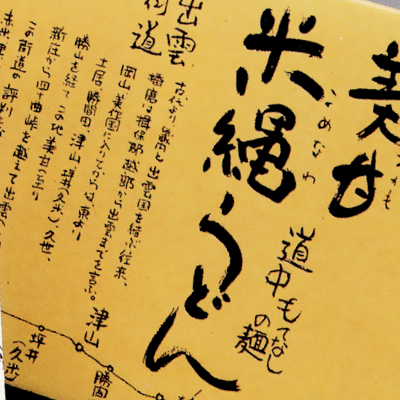 美甘
米縄うどん
めなわ
道中もてなし
の麺
出雲
街道
古代より、畿内と出雲国を結ぶ往来、
播磨の揖保郡越部から出雲までを言う。
岡山、美作国に入りてからは東より
土居、勝間田、津山、坪井(久米)、久世、
勝山を経てこの地美甘に至り
新庄から四十曲峠を越えて出雲へ
この街道の評判
津山
勝間
坪井
(久米)